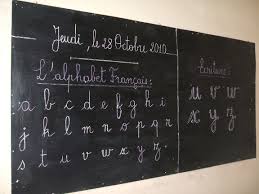 Jeudi, le 28 Octobre 2010
L'alphabet Français:
a b c d e f g h i
j k l m n o p q r
s t u v w x y z
Ecriture:
u v w
x y z